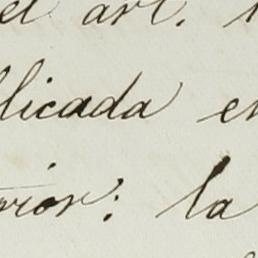 el art.
licada en
rior: la